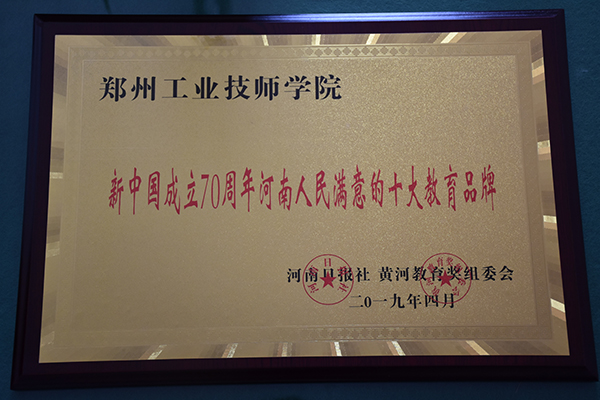 郑州工业技师学院
新中国成立70周年河南人民满意的十大教育品牌
河南日报社 黄河教育奖组委会
二0一九年四月